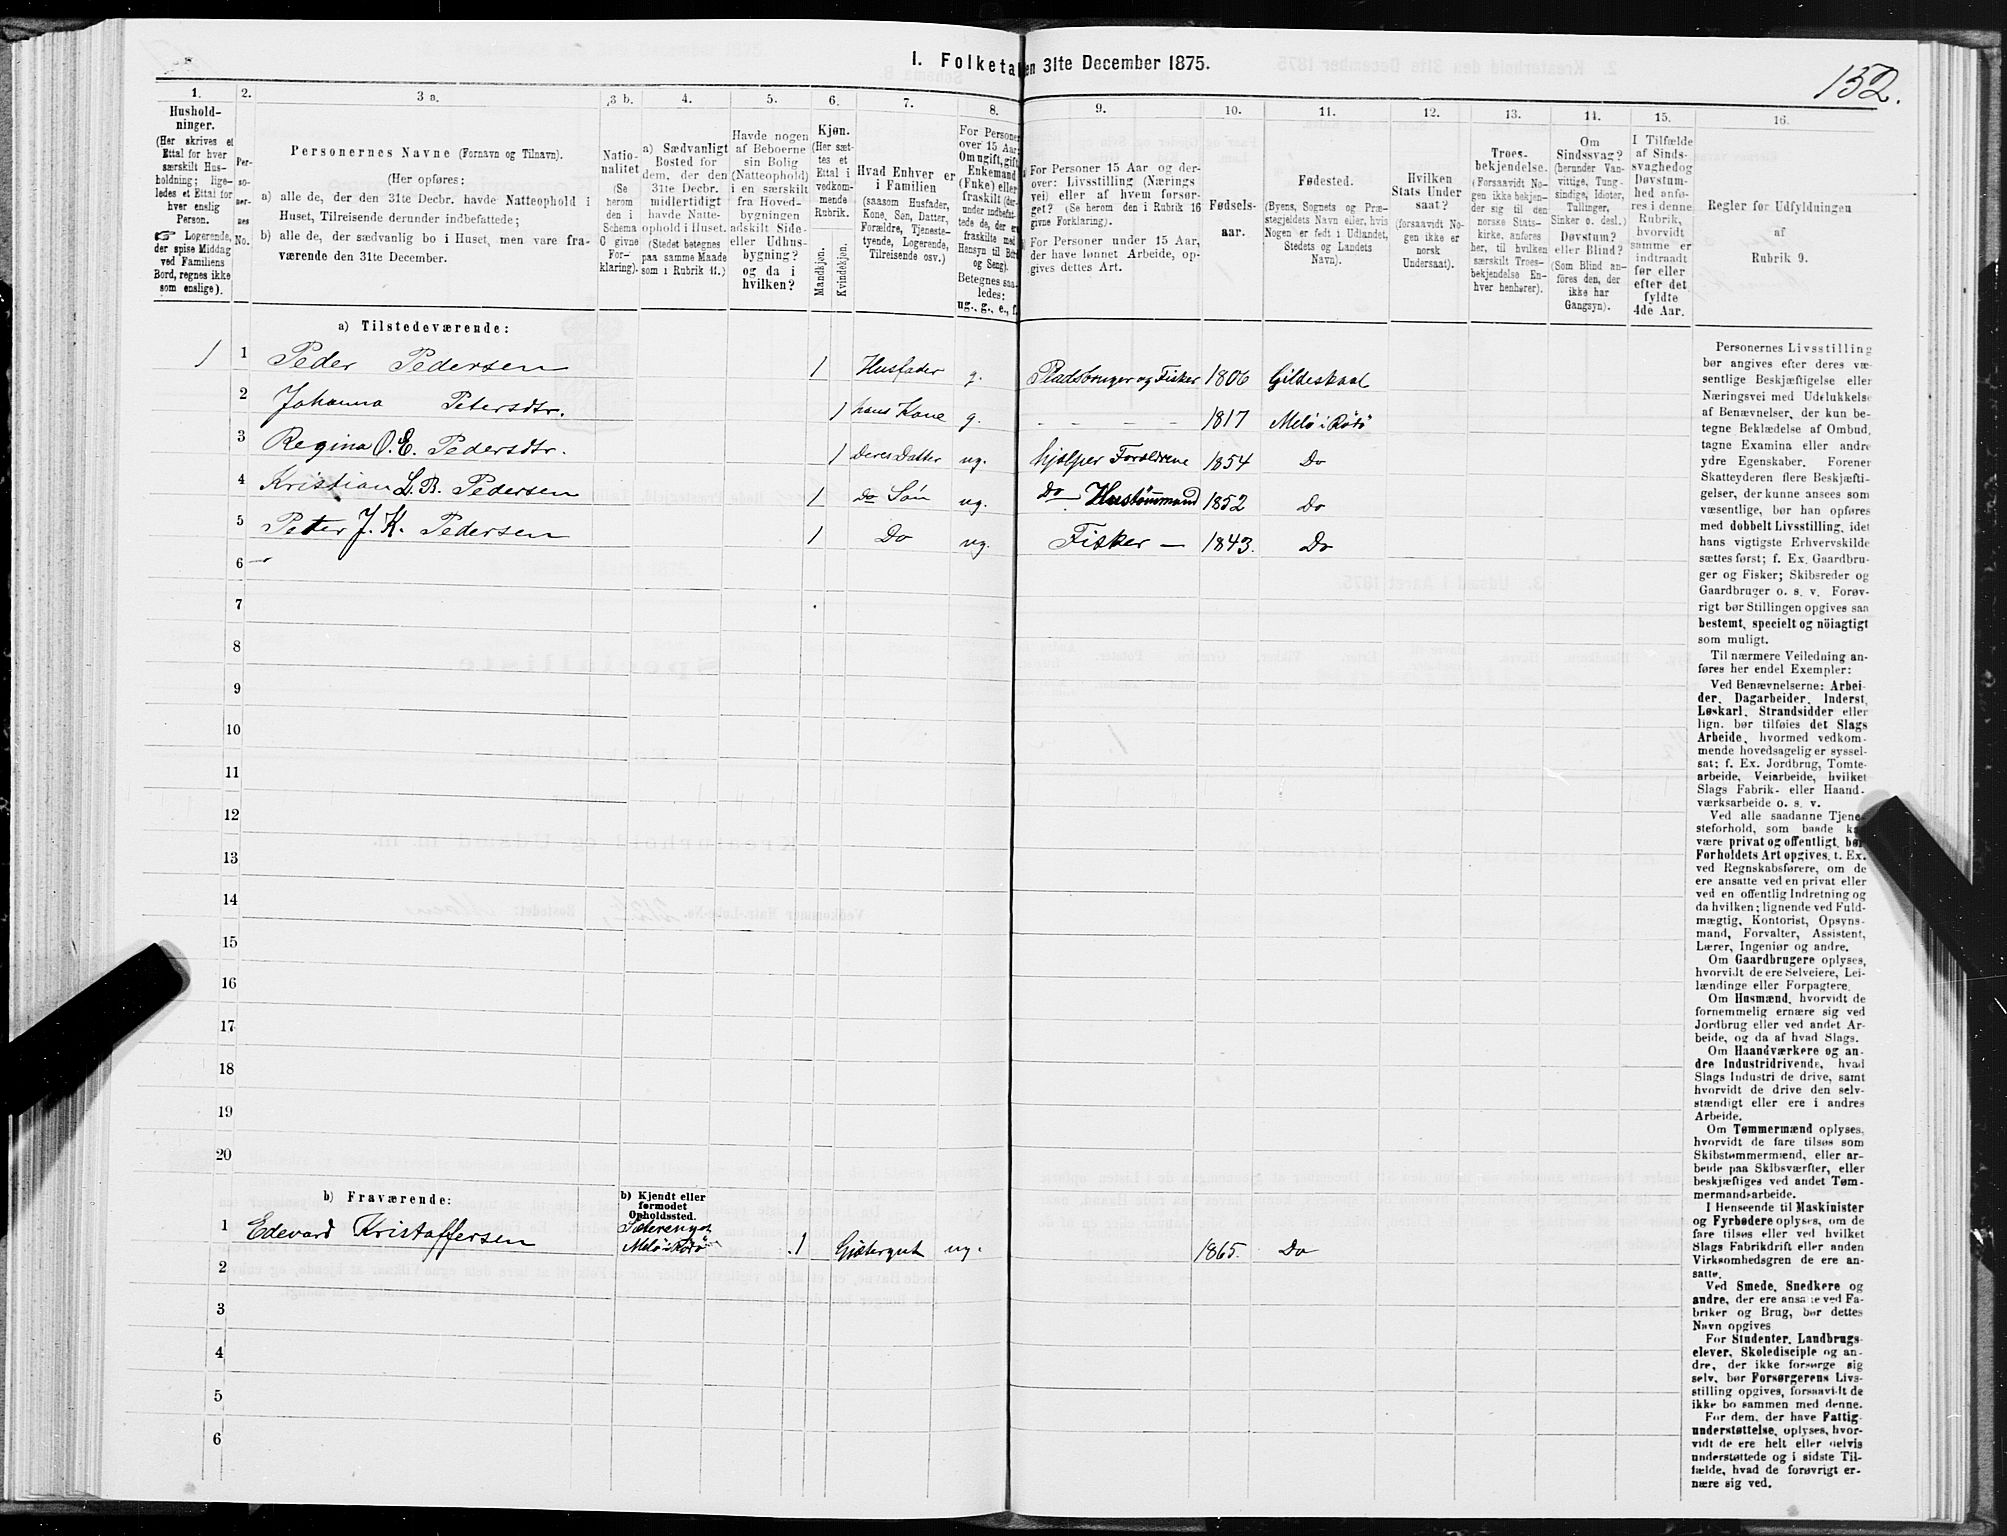 152.
I. Folketæ
en 31te December 1875.
1.
2.
3 a.
3 b.
4.
5.
6.
7.
8.
9.
10.
11.
12.
13.
14.
15.
16.
Hushold-
ninger.
(Her skrives et
Ettal for hver
særskilt Hus-
holdning; lige-
ledes et Ettal for
hver enslig
Person.
☞ Logerende,
der spise Middag
ved Familiens
Bord, regnes ikke
som enslige).
Per-
so-
ner-
nes
No.
Personernes Navne (Fornavn og Tilnavn).
(Her opføres:
a) alle de, der den 31te Decbr. havde Natteophold i
Huset, Tilreisende derunder indbefattede;
b) alle de, der sædvanlig bo i Huset, men vare fra-
værende den 31te December.
Natio-
nalitet
(Se
herom
den i
Schema
6 givne
For-
klaring).
a) Sædvanligt
Bosted for
dem, der den
31te Decbr.
midlertidigt
havde Natte-
ophold i Huset.
(Stedet betegnes
paa samme Maade
som i Rubrik 11.)
Havde nogen
af Beboerne
sin Bolig
(Natteophold)
i en særskilt
fra Hoved-
bygningen
adskilt Side-
eller Udhus-
bygning?
og da i
hvilken?
Kjøn.
(Her sæt-
tes et
Ettal i
vedkom-
mende
Rubrik.
Mandkjøn.
Kvindekjøn.
Hvad Enhver er
i Familien
(saasom Husfader,
Kone, Søn, Datter,
Forældre, Tjeneste-
tyende, Logerende,
Tilreisende osv.)
For Personer
over 15 Aar:
Om ugift, gift,
Enkemand
(Enke) eller
fraskilt (der-
under indbefat-
tede de, der er
fraskilte med
Hensyn til Bord
og Seng).
Betegnes saa-
ledes:
ug., g., e., f.
For Personer 15 Aar og der-
over: Livsstilling (Nærings
vei) eller af hvem forsør-
get? (Se herom den i Rubrik 16
givne Forklaring).
For Personer under 15 Aar,
der have lønnet Arbeide, op-
gives dettes Art.
Fødsels-
aar.
Fødested.
(Byens, Sognets og Præ-
stegjeldets Navn eller, hvis
Nogen er født i Udlandet,
Stedets og Landets
Navn).
Hvilken
Stats Under
saat?
(forsaavidt No-
gen ikke er
norsk
Undersaat).
Troes-
bekjendelse.
(Forsaavidt No-
gen ikke bekjen-
der sig til den
norske Stats-
kirke, anføres
her, til hvilken
særskilt Troes-
bekjendelse En-
hver henhører).
Om
Sindssvag?
(herunder Van-
vittige, Tung-
sindige, Idioter,
Tullinger,
Sinker o. desl.)
Døvstum?
eller Blind?
(Som Blind an-
føres den, der
ikke har
Gangsyn).
I Tilfælde
af Sinds-
svaghed og
Døvstum-
hed anfø-
res i denne
Rubrik,
hvorvidt
samme er
indtraadt
før eller
efter det
fyldte
4de Aar.
Regler for Udfyldningen
af
Rubrik 9.
a) Tilstedeværende:
1 1 Peder Pedersen 1 Husfader g. Pladsbruger og Fisker 1806 Gildeskaal
2 Johanna Petersdtr. 1 hans Kone g. - - - - 1817 Melö i Rödö
3 Regina O. E. Pedersdtr. 1 Deres Datter ug. hjælper Foraldrene 1854 Do
4 Kristian L. B. Pedersen 1 Do Sön ug. Do Hustömmand 1852 Do
5 Peter J. K. Pedersen 1 Do ug. Fisker — 1843. Do
6
7
8
9
10
11
12
13
14
15
16
17
18
19
20
b) Fraværende:
b) Kjendt eller
formodet
Opholdssted.
1 Edevard Kristoffersen Melö i Rödö 1 Gjætergut ug. 1865. Do
2
3
4
5
6
Personernes Livsstilling
bør angives efter deres væ-
sentlige Beskjæftigelse eller
Næringsvei med Udelukkelse
af Benævnelser, der kun be-
tegne Beklædelse af Ombud,
tagne Examina eller andre
ydre Egenskaber. Forener
Skatteyderen flere Beskjæfti-
gelser, der kunne ansees som
væsentlige, bør han opføres
med dobbelt Livsstilling, idet
hans vigtigste Erhvervskilde
sættes først; f. Ex. Gaardbru-
ger og Fisker; Skibsreder og
Gaardbruger o. s. v. Forøv-
rigt bør Stillingen opgives saa
bestemt, specielt og nöiagtigt
som muligt.
Til nærmere Veiledning an-
føres her endel Exempler:
Ved Benævnelserne: Arbei-
der, Dagarbeider, Inderst,
Løskarl, Strandsidder eller
lign. bør tilføies det Slags
Arbeide, hvormed vedkom-
mende hovedsagelig er syssel-
sat; f. Ex. Jordbrug, Tomte-
arbeide, Veiarbeide, hvilket
Slags Fabrik- eller Haand-
værksarbeide o. s. v.
Ved alle saadanne Tjene-
steforhold, som baade ka
være privat og offentligt, bør
Forholdets Art opgives, t. Ex.
ved Regnskabsførere, om de
ere ansatte ved en privat eller
ved en offentlig Indretning og
da hvilken; lignende ved Fuld-
mægtig, Kontorist, Opsyns-
mand, Forvalter, Assistent,
Lærer, Ingeniør og andre.
Om Gaardbrugere oplyses,
hvorvidt de ere Selveiere, Lei-
lændinge eller Forpagtere.
Om Husmænd, hvorvidt de
fornemmelig ernære sig ved
Jordbrug eller ved andet Ar-
beide, og da af hvad Slags.
Om Haandværkere og an-
dre Industridrivende, hvad
Slags Industri de drive, samt
hvorvidt de drive den selv-
stændigt eller ere i andres
Arbeide.
Om Tømmermænd oplyses,
hvorvidt de fare tilsøs som
Skibstømmermænd, eller ar-
beide paa Skibsværfter, eller
beskjæftiges ved andet Tøm-
mermandsarbeide.
I Henseende til Maskinister
og Fyrbødere oplyses, om de
fare tilsøs eller ved hvilket
Slags Fabrikdrift eller anden
Virksomhedsgren de ere an-
satte.
Ved Smede, Snedkere og
andre, der ere ansatte ved Fa-
briker og Brug, bør dettes
Navn opgives
For Studenter, Landbrugs-
elever, Skoledisciple og an-
dre, der ikke forsørge sig
selv, bør Forsørgerens Livs-
stilling opgives, forsaavidt de
ikke bo sammen med denne.
For dem, der have Fattig-
understøttelse, oplyses, hvor-
vidt de ere helt eller delvis
understøttede og i sidste Til-
fælde, hvad de forøvrigt er-
nære sig ved.